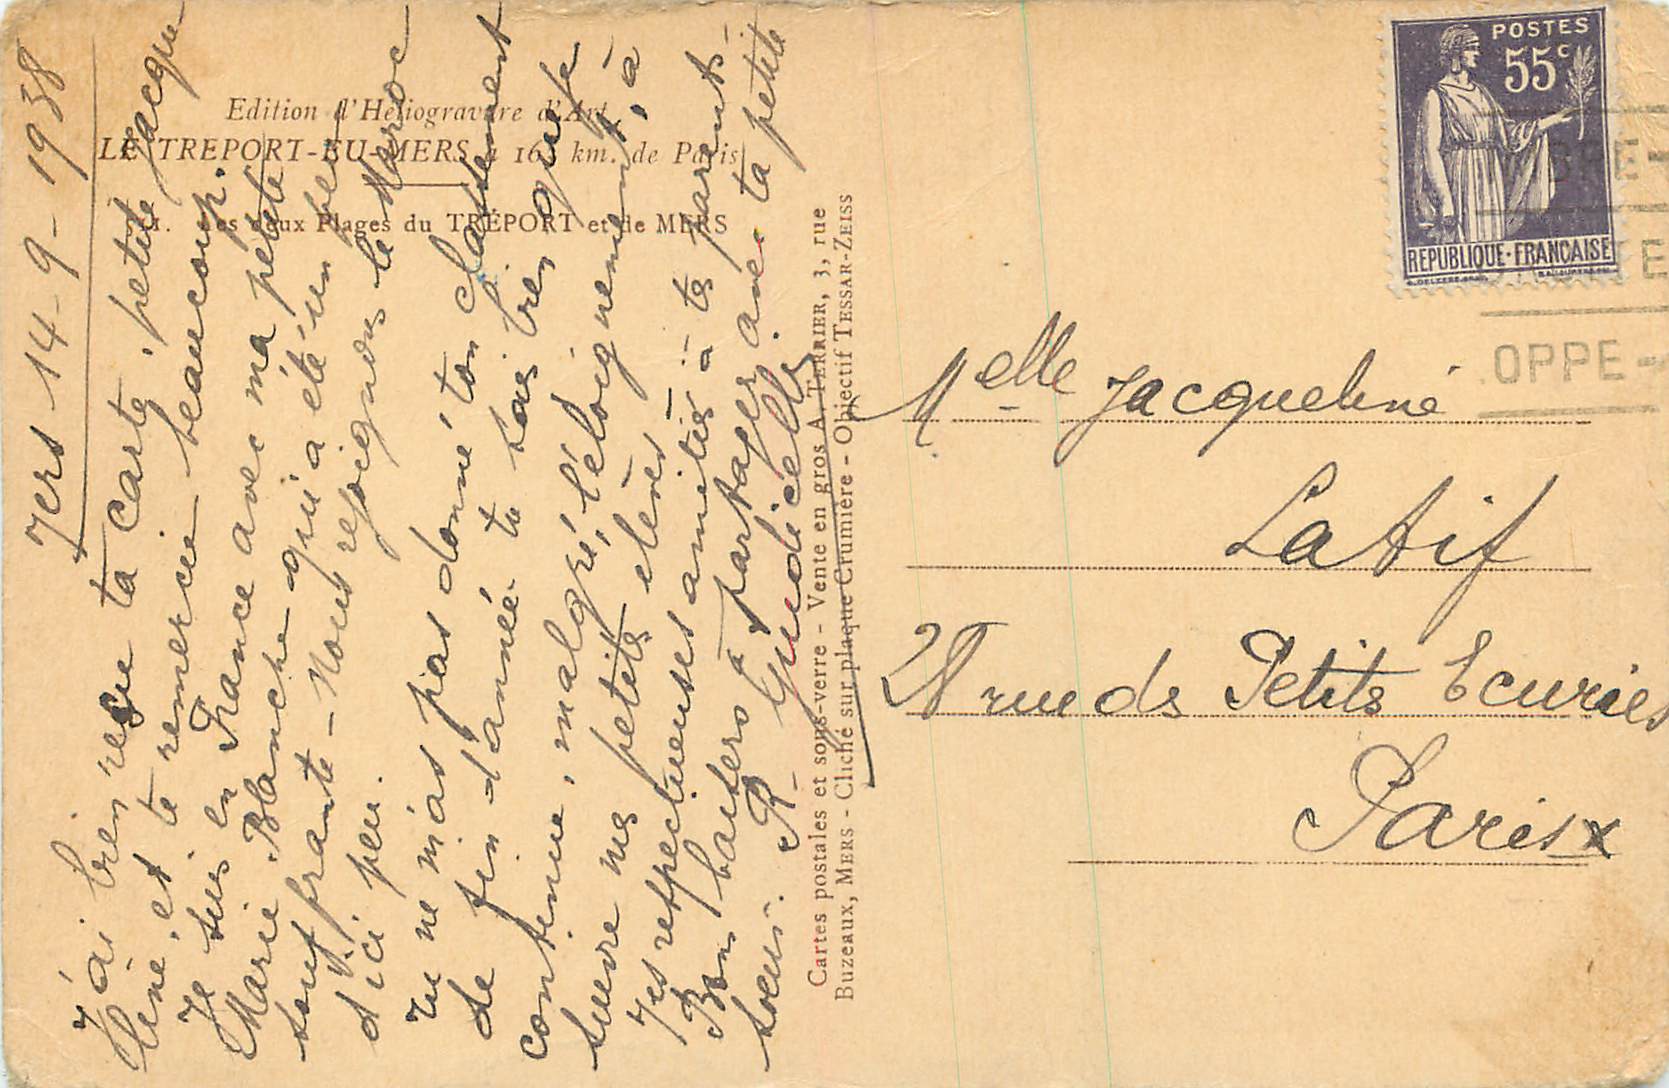 Edition d'Héliogravure d'Art
LE TREPORT-EU-MERS à 16 km. de Paris
Les deux Plages du TRÉPORT et de MERS
14-9-1938
J'ai bien reçu ta carte, petite Jacque
line, et te remercie beaucoup.
Je suis en France avec ma petite
Marie Blanche qui a été un peu
souffrante - Nous rejoignons le Maroc
d'ici peu.
Tu ne m'as pas donné ton classement
de fin d'année. tu sais bien que je
continue, malgré l'éloignement, à
suivre mes petites elèves -
Mes respectueuses amitiés à tes parents -
Bons baisers à partager avec ta petite
soeur. R. Giudicelli
Cartes postales et sous-verre - Vente en gros A. TERRIER, 3, rue
Buzeaux, MERS - Cliché sur plaque Crumière - Objectif TESSAR-ZEISS
POSTES
55c
REPUBLIQUE·FRANÇAISE
OPPE-
Melle Jacqueline
Latif
rue des Petites Ecuries
Paris X